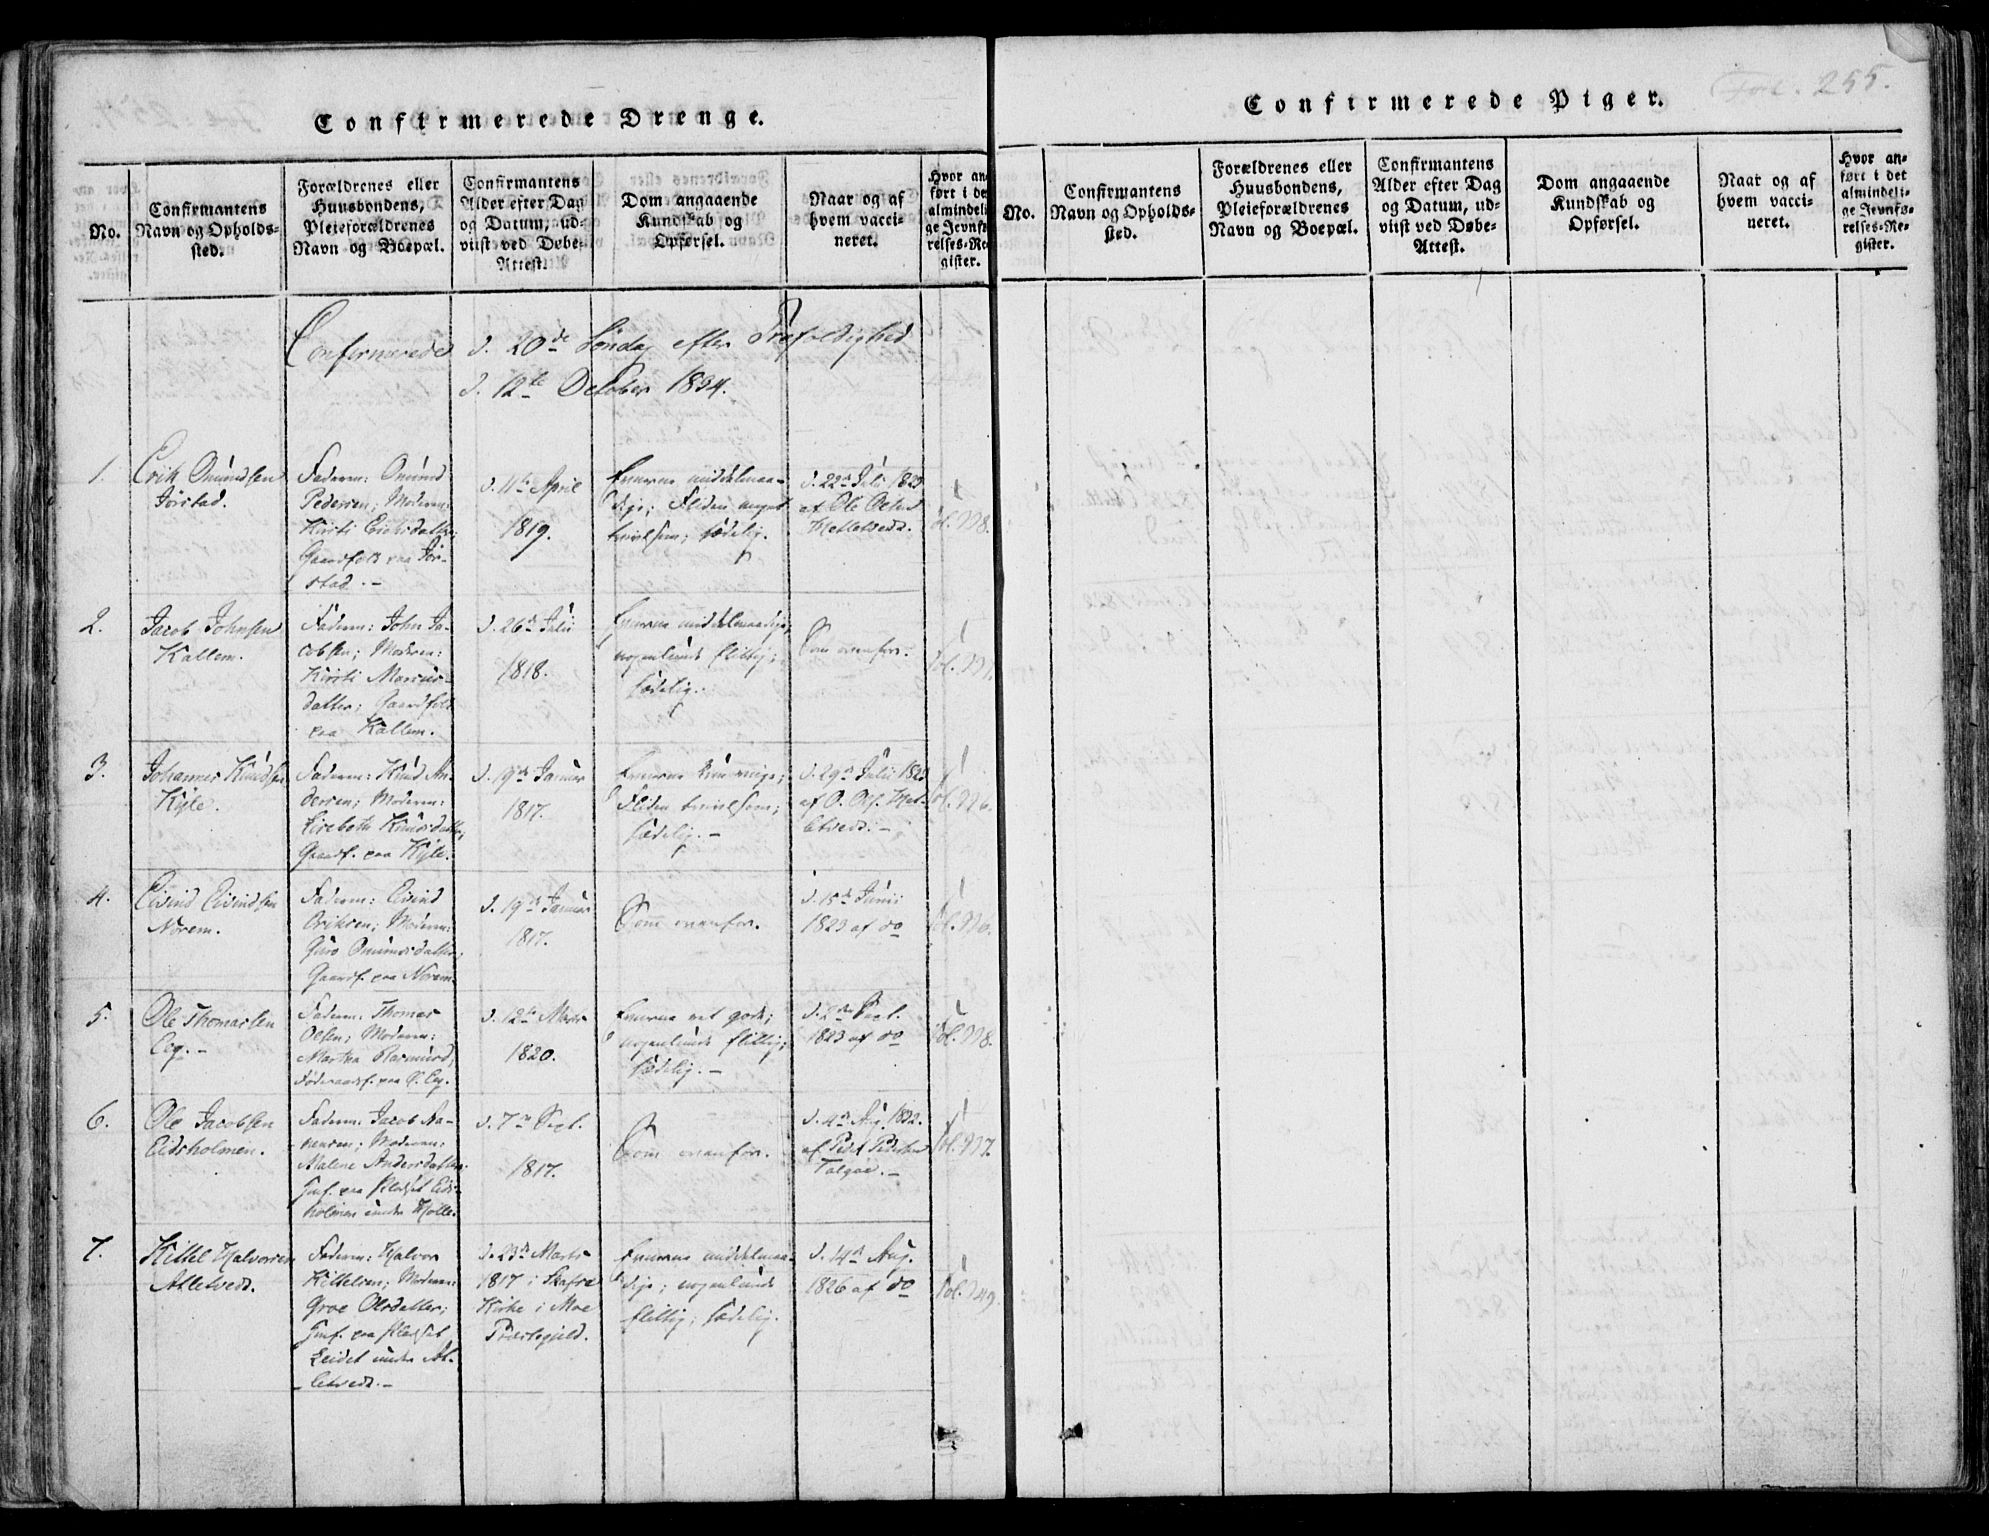 Confirmerede Drenge.
No.
Confirmantens
Navn og Opholds-
sted.
Forældrenes eller
Huusbondens,
Pleieforældrenes
Navn og Boepæl.
Confirmantens
Alder efter Dag
og Datum, ud-
viist ved Døbe-
Attest.
Dom angaaende
Kundskab og
Opførsel.
Naar og af
hvem vacci-
neret.
Hvor an-
ført i de
almindeli
ge Jevnfø
relses-Re
gister.
Confirmerede d. 20de Søndag efter Trefoldighed
d. 12te October 1834.
1.
Erik Omundsen
Jørstad.
Faderen: Omund
Pedersen; Moderen:
Kirsti Eriksdatter;
Gaardfolk paa Jør-
stad. -
d. 11te April
1819.
Evnerne middelmaa-
dige; Fliden meget
tvivlsom; sædelig.
d. 22de Juli 1823
af Ole Olsen
Metletvedt.
fol. 118.
2.
Jacob Johnsen
Kallem.
Faderen: John Ja-
cobsen; Moderen:
Kirsti Marcus-
datter; Gaardfolk
paa Kallem.
d. 26de Juli
1818.
Evnerne middelmaadige;
nogenlunde flittig;
sædelig.
Som ovenfor.
3.
Johannes Knudsen
Kyle.
Faderen: Knud An-
dersen; Moderen:
Lisebeth Knudsdatter;
Gaardf. paa Kyle.
d. 19de Januar
1817.
Evnerne
Fliden tvivlsom;
sædelig. -
d. 29de Julii 1823
af O. Ols. Met-
letvedt. -
fol. 116.
4.
Eivind Eivindsen
Norem.
Faderen: Eivind
Eriksen; Moderen:
Guro Omundsdatter;
Gaardf. paa Norem.
d. 19de Januar
1817.
Som ovenfor.
d. 15de Junii
1823 af do
fol. 116.
5.
Ole Thomassen
Eeg. -
Faderen: Thomas
Olsen; Moderen:
Martha Rasmusd;
Føderaadsf. paa Eeg.
d. 12te Marts
1820.
Evnerne ret gode;
nogenlunde flittig;
sædelig. -
Sept.
1823 af do
fol. 118.
6.
Ole Jacobsen
Eidsholmen.
Faderen: Jacob
Moderen:
Malene Andersdatter
Huusf. paa Pladset Eids-
holmen under
d. 7de Sept.
1817.
Som ovenfor.
d. 4de Aug. 1832.
af Peder Pedersen
Talgøe. -
fol. 117.
7.
Kittel Halvorsen
Atletvedt.
Faderen: Halvor
Kittelsen; Moderen:
Groe Olsdatter;
Huusf. paa Pladset
Leidet under At-
letvedt. -
d. 23de Marts
1817 i Skafse
Kirke i Moe
Præstegield.
Evnerne middelmaa-
dige; nogenlunde
flittig; sædelig.
d. 14de Aug.
1826 af do
fol. 149.
Confirmerede Piger.
Fol. 255.
No.
Confirmantens
Navn og Opholds-
sted.
Forældrenes eller
Huusbondens,
Pleieforældrenes
Navn og Boepæl.
Confirmantens
Alder efter Dag
og Datum, ud-
viist ved Døbe-
Attest.
Dom angaaende
Kundskab og
Opførsel.
Naar og af
hvem vacci-
neret.
Hvor an-
ført i det
almindeli-
ge Jevnfø-
relses-Re-
gister.